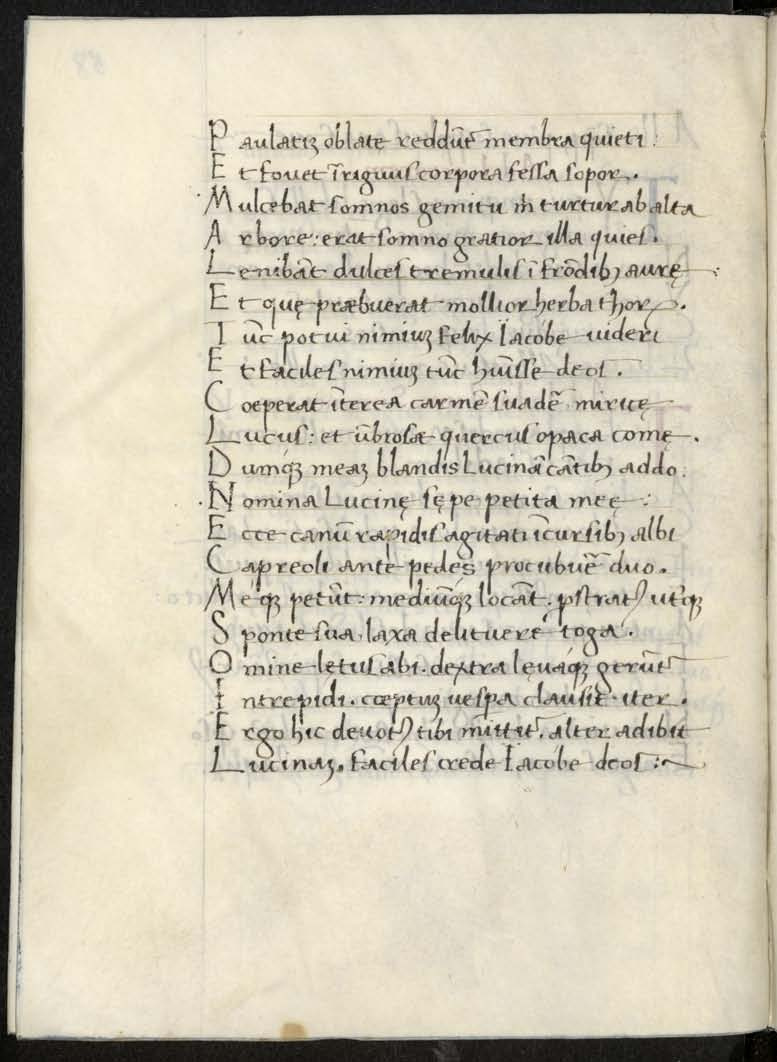 Paulatiꝫ oblate reddūt᷑ membra quieti :
Et fouet īriguus corpora fessa sopor.
Mulcebat somnos gemitu m̄ turtur ab alta
Arbore : erat somno gratior illa quies.
Lenibāt dulces tremulis ī frōdibꝫ aurę :
Et quę præbuerat mollior herba thorꝝ.
Tūc potui nimiuꝫ felix Iacobe uideri
Et faciles nimiuꝫ tūc huīsse deos.
Coeperat īterea carmē suadē miricę
Lucus : et ūbrosæ quercus opaca comę.
Dumqꝫ meaꝫ blandis Lucinā cātibꝫ addo.
Nomina Lucinę sępe petita meę :
Ecce canū rapidis agitati īcursibꝫ albi
Capreoli ante pedes procubuē duo.
Meqꝫ petūt : mediūqꝫ locāt. ꝓstratꝰ utqꝫ
Sponte sua laxa delituere toga.
Omine lętus abi. dextra lęuaqꝫ gerūt᷑
Intrepidi. cœptuꝫ uespa clausit iter.
Ergo hic deuotꝰ tibi mittit᷑. alter adibit
Lucinaꝫ. faciles crede Iacobe deos :~